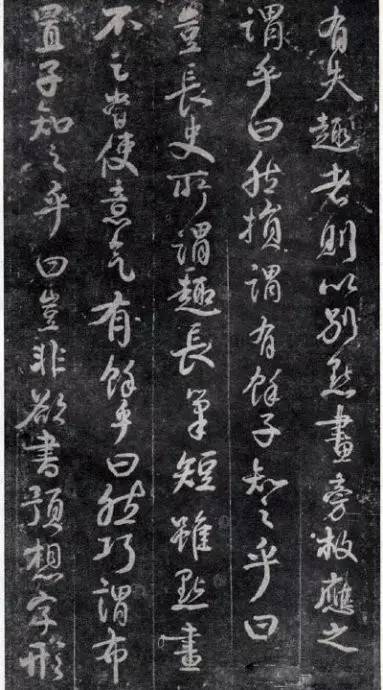 有失趣者則以別點畫旁救應之
謂乎曰然損謂有餘子知之乎曰
豈長史所謂趣長筆短雖點畫
不足常使意氣有餘乎曰然巧謂布
置子知之乎曰豈非欲書預想字形